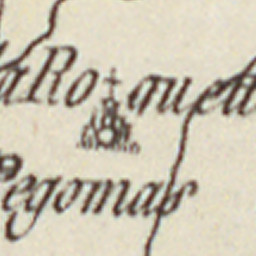 la Roquett
Pegomas